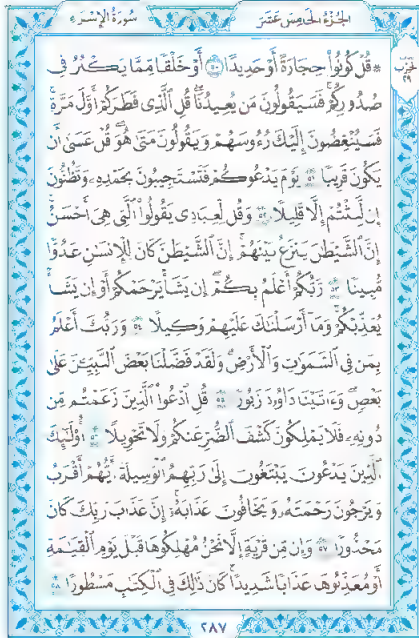 سُورَةُ الإِسْرَاءِ الجُزْءُ الخَامِسَ عَشَرَ
الحِزْب
٢٩
۞ قُلْ كُونُوا۟ حِجَارَةً أَوْ حَدِيدًا ٥٠ أَوْ خَلْقًا مِّمَّا يَكْبُرُ فِى
صُدُورِكُمْ ۚ فَسَيَقُولُونَ مَن يُعِيدُنَا ۖ قُلِ ٱلَّذِى فَطَرَكُمْ أَوَّلَ مَرَّةٍ ۚ
فَسَيُنْغِضُونَ إِلَيْكَ رُءُوسَهُمْ وَيَقُولُونَ مَتَىٰ هُوَ ۖ قُلْ عَسَىٰٓ أَن
يَكُونَ قَرِيبًا ٥١ يَوْمَ يَدْعُوكُمْ فَتَسْتَجِيبُونَ بِحَمْدِهِۦ وَتَظُنُّونَ
إِن لَّبِثْتُمْ إِلَّا قَلِيلًا ٥٢ وَقُل لِّعِبَادِى يَقُولُوا۟ ٱلَّتِى هِىَ أَحْسَنُ ۚ
إِنَّ ٱلشَّيْطَٰنَ يَنزَغُ بَيْنَهُمْ ۚ إِنَّ ٱلشَّيْطَٰنَ كَانَ لِلْإِنسَٰنِ عَدُوًّا
مُّبِينًا ٥٣ رَّبُّكُمْ أَعْلَمُ بِكُمْ ۖ إِن يَشَأْ يَرْحَمْكُمْ أَوْ إِن يَشَأْ
يُعَذِّبْكُمْ ۚ وَمَآ أَرْسَلْنَٰكَ عَلَيْهِمْ وَكِيلًا ٥٤ وَرَبُّكَ أَعْلَمُ
بِمَن فِى ٱلسَّمَٰوَٰتِ وَٱلْأَرْضِ ۗ وَلَقَدْ فَضَّلْنَا بَعْضَ ٱلنَّبِيِّۦنَ عَلَىٰ
بَعْضٍ ۖ وَءَاتَيْنَا دَاوُۥدَ زَبُورًا ٥٥ قُلِ ٱدْعُوا۟ ٱلَّذِينَ زَعَمْتُم مِّن
دُونِهِۦ فَلَا يَمْلِكُونَ كَشْفَ ٱلضُّرِّ عَنكُمْ وَلَا تَحْوِيلًا ٥٦ أُو۟لَٰٓئِكَ
ٱلَّذِينَ يَدْعُونَ يَبْتَغُونَ إِلَىٰ رَبِّهِمُ ٱلْوَسِيلَةَ أَيُّهُمْ أَقْرَبُ
وَيَرْجُونَ رَحْمَتَهُۥ وَيَخَافُونَ عَذَابَهُۥٓ ۚ إِنَّ عَذَابَ رَبِّكَ كَانَ
مَحْذُورًا ٥٧ وَإِن مِّن قَرْيَةٍ إِلَّا نَحْنُ مُهْلِكُوهَا قَبْلَ يَوْمِ ٱلْقِيَٰمَةِ
أَوْ مُعَذِّبُوهَا عَذَابًا شَدِيدًا ۚ كَانَ ذَٰلِكَ فِى ٱلْكِتَٰبِ مَسْطُورًا ٥٨
٢٨٧